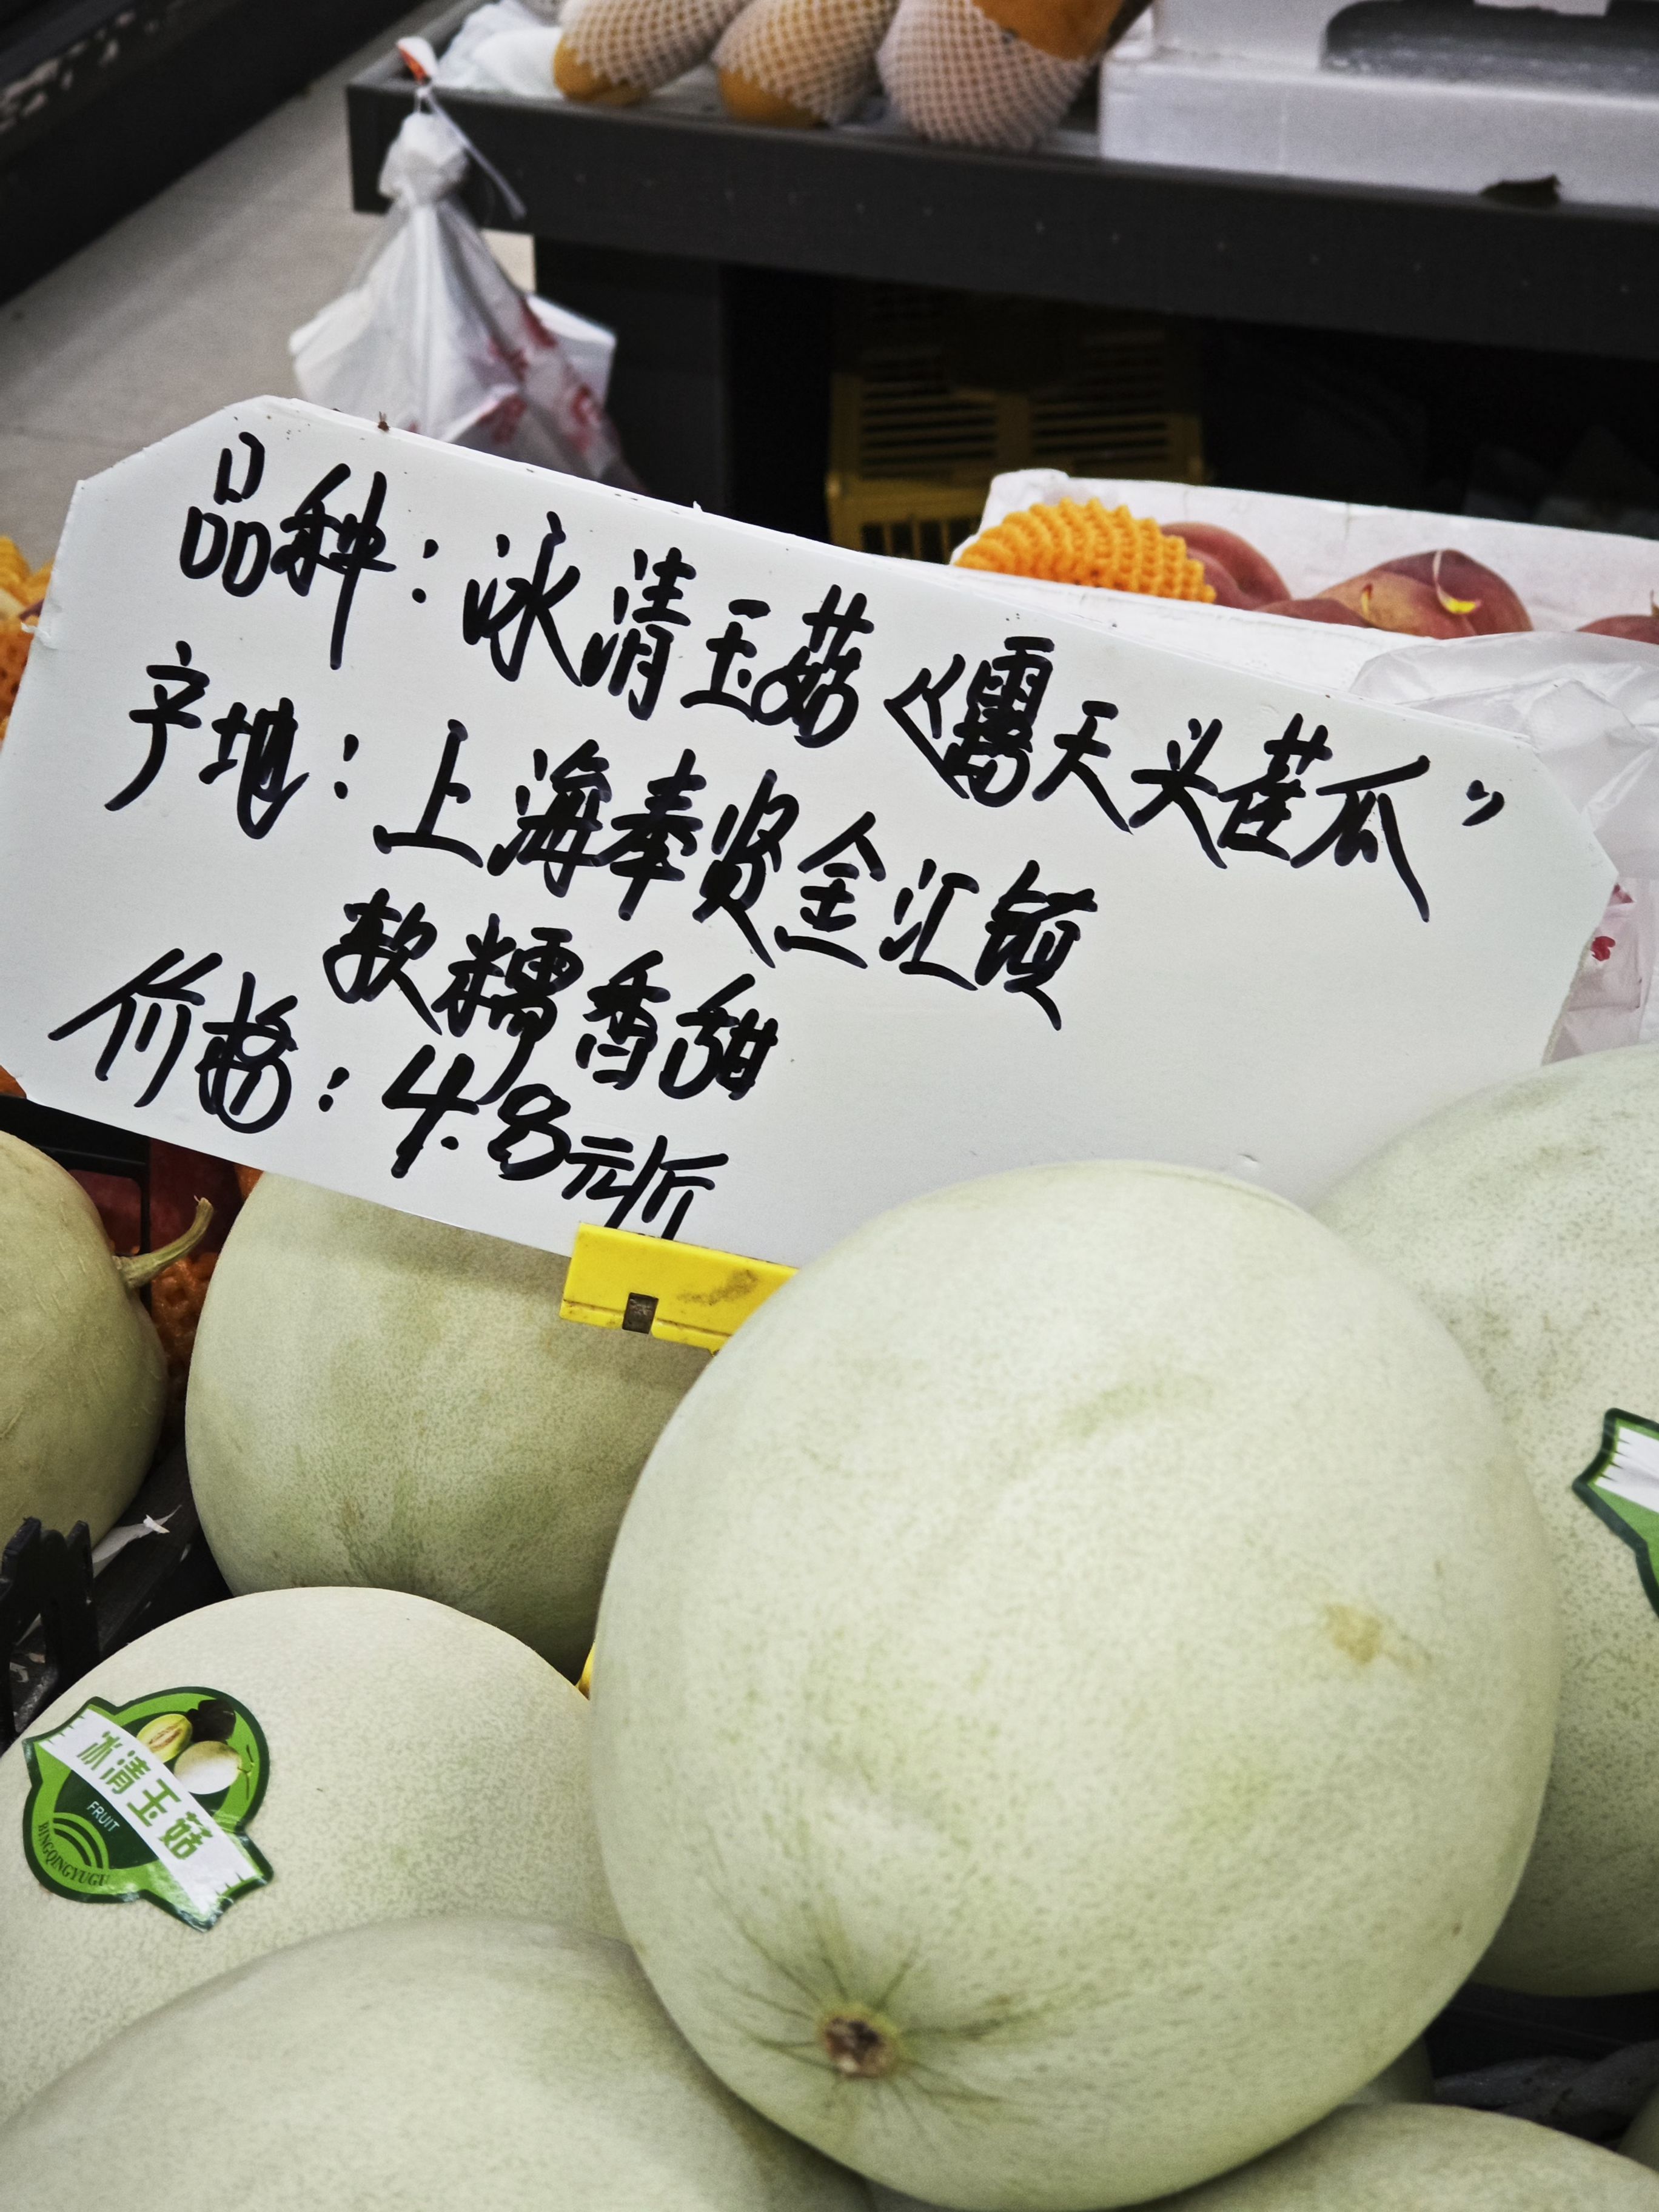 品种：冰清玉菇《露天头茬瓜”
产地：上海奉贤金汇镇
软糯香甜
价格：4.8元/斤
冰清玉菇
FRUIT
BINGQINGYUGU